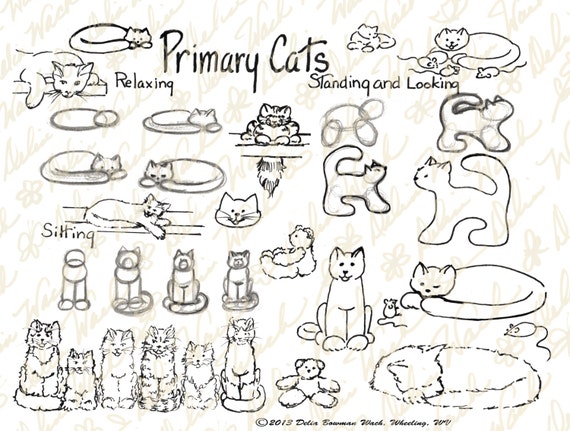 Primary Cats
Relaxing
Standing and Looking
Sitting
©2013 Delia Bowman Wach, Wheeling, WV
Delia Wach